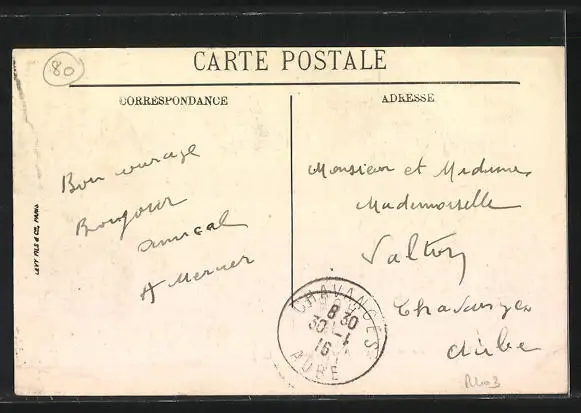 80
CARTE POSTALE
CORRESPONDANCE
ADRESSE
LEVY FILS & CIE, PARIS
Bon courage
Bonjour
amical
A Mercier
Monsieur et Madame
Mademoiselle
Valton
Chavanges
Aube
CHAVANGES
8 30
30 - 1
16
AUBE